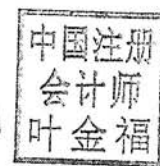 中国注册
会计师
叶金福